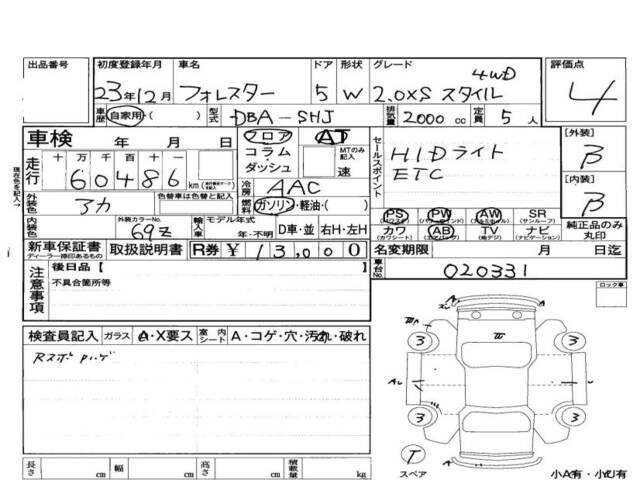 出品番号 初度登録年月 車名 ドア 形状 グレード 評価点
23年12月 フォレスター 5 W 2.0XS スタイル 4WD 4
車歴 自家用( ) 型式 DBA-SHJ 排気量 2000 cc 定員 5 人
車検 年 月 日 フロア コラム・ダッシュ AT MTのみ記入 速
走行 十万 千百十一 60486 km
冷房 AAC
燃料 ガソリン・軽油・( )
セールスポイント HIDライト
ETC
[外装] B
[内装] B
外装色 アカ 色替車は色替と記入
内装色 外装カラーNo. 69Z 輸入車 モデル年式 年・不明 D車・並 右H・左H
PS PW AW SR
(パワステ) (パワーウィンドウ) (アルミホイル) (サンルーフ)
カワ AB TV ナビ
(カワシート) (エアバッグ) (地デジ) (ナビゲーション)
純正品のみ丸印
現在色を記入→
新車保証書 取扱説明書 R券 ¥ 13,000 名変期限 月 日迄
ディーラー捺印あるもの
車台No. 020331
注意事項 後日品【
不具合箇所等
ロック車
検査員記入 ガラス A・X要ス 室内シート A・コゲ・穴・汚れ・破れ
Rスポ ハゲ
3 3
3 3
T
スペア
長さ cm 幅 cm 高さ cm 積載量 kg
小A有・小U有